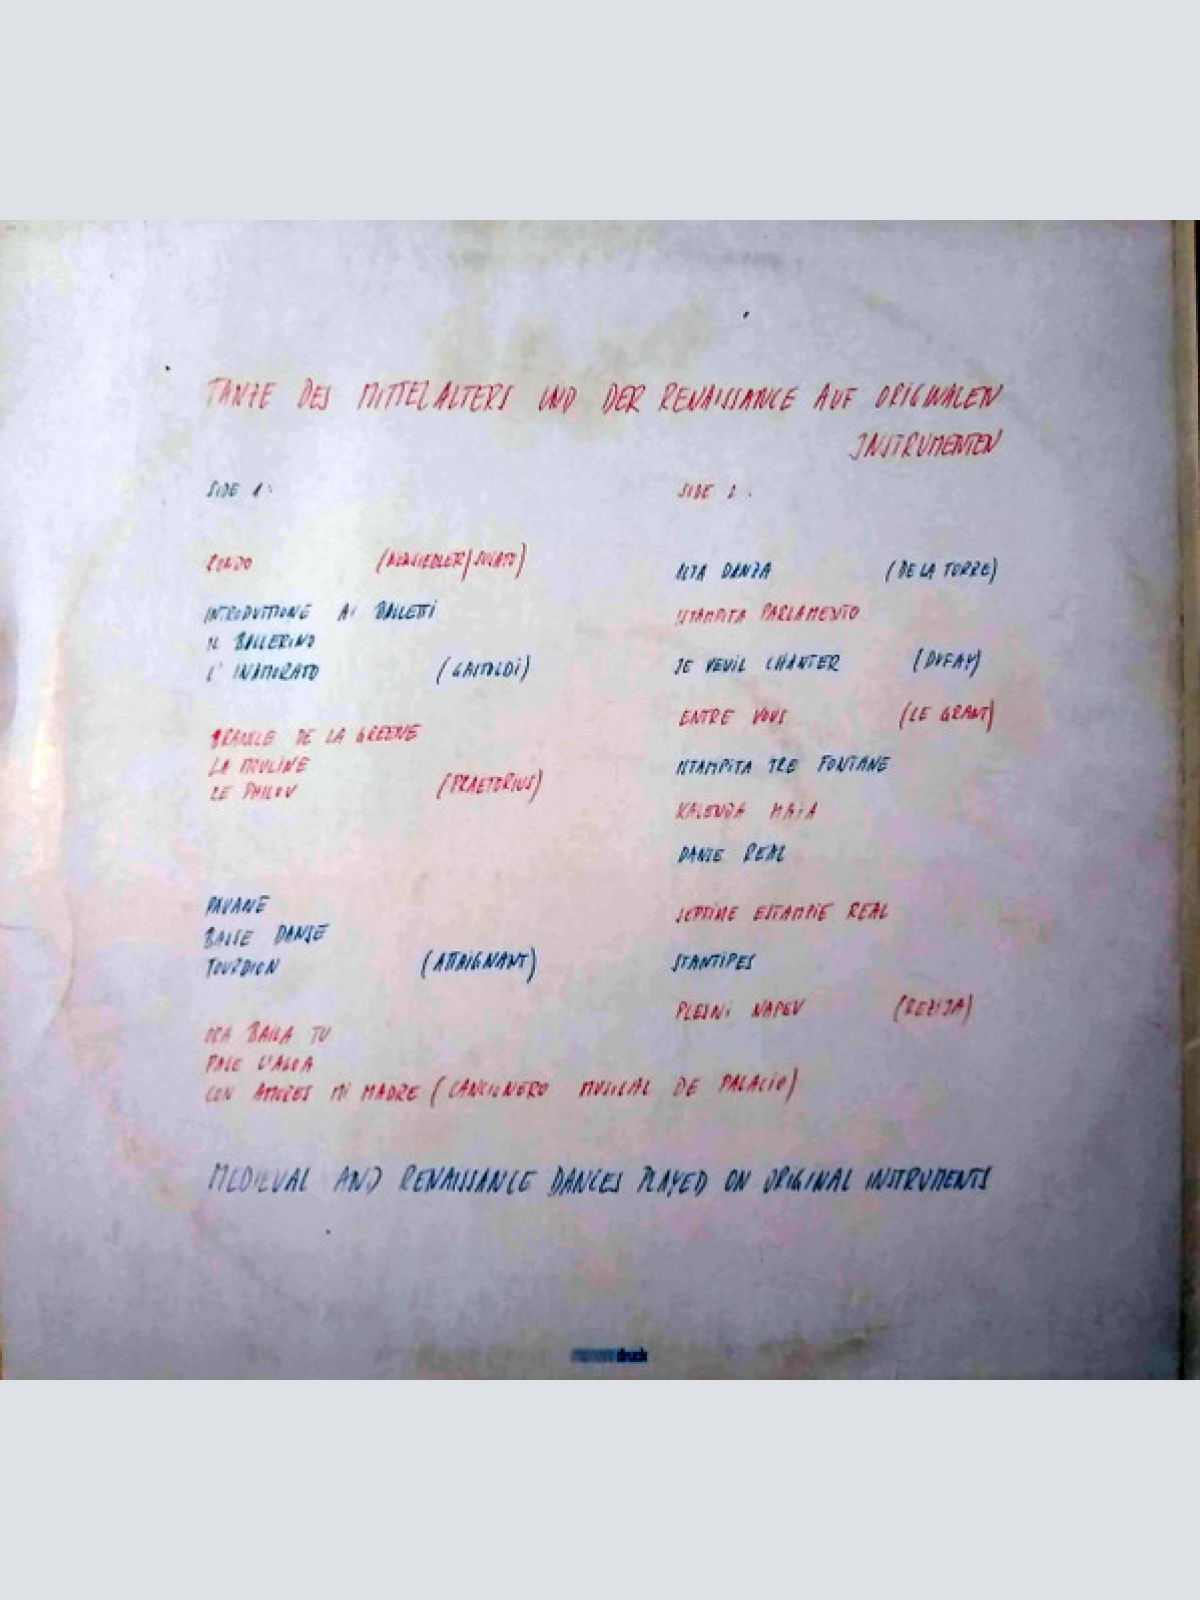 TANZE DES MITTELALTERS UND DER RENAISSANCE AUF ORIGINALEN
INSTRUMENTEN
SIDE 1:
RONDO (NEUSIEDLER/SUSATO)
INTRODUTTIONE AI BALLETTI
IL BALLERINO
L'INAMORATO (GASTOLDI)
BRANSLE DE LA GREENE
LA MOULINE
LE PHILOU (PRAETORIUS)
PAVANE
BASSE DANSE
TOURDION (ATTAIGNANT)
ORA BAILA TU
PASE L'AGOA
CON AMORES MI MADRE (CANCIONERO MUSICAL DE PALACIO)
SIDE 2:
ALTA DANZA (DE LA TORRE)
ISTAMPITA PARLAMENTO
JE VEUIL CHANTER (DUFAY)
ENTRE VOUS (LE GRANT)
ISTAMPITA TRE FONTANE
KALENDA MAIA
DANSE REAL
SEPTIME ESTAMPIE REAL
STANTIPES
PLESNI NAPEV (REZIJA)
MEDIEVAL AND RENAISSANCE DANCES PLAYED ON ORIGINAL INSTRUMENTS
druck